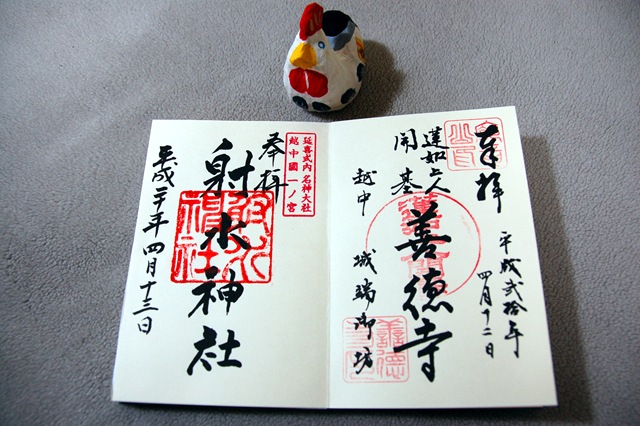 奉拝
平成弐拾年
四月十二日
蓮如上人
開基
善徳寺
越中 城端御坊
延喜式内 名神大社
越中國一ノ宮
奉拝
射水神社
平成二十年四月十三日